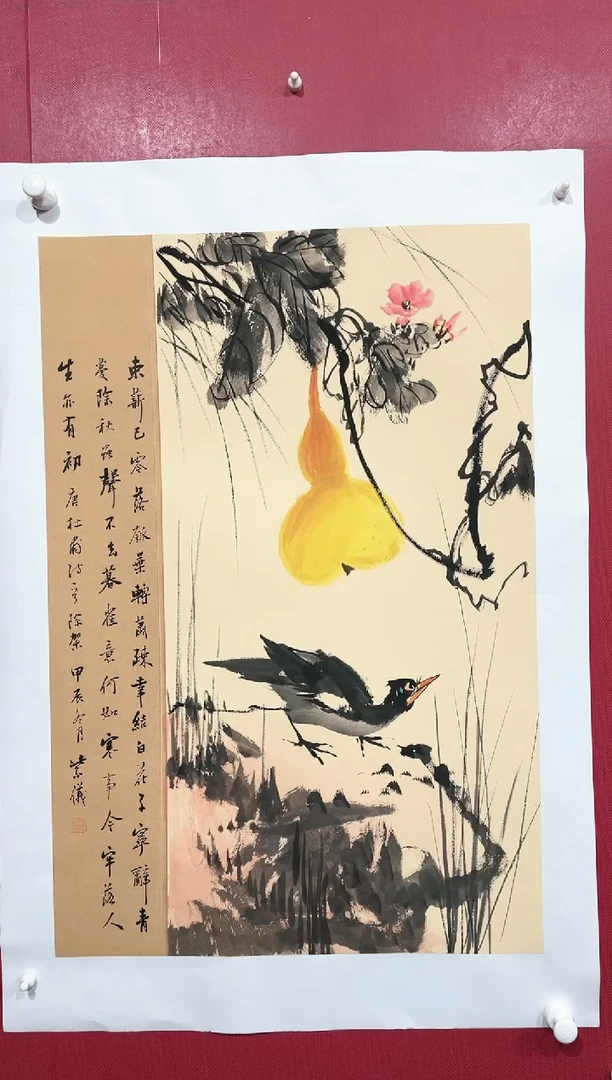 束薪已零落瓠葉轉蕭疎幸結白花了寧辭青
蔓除秋蟲聲不去暮雀意何如寒事今牢落人
生亦有初 唐杜甫詩 除架 甲辰冬月 紫儀